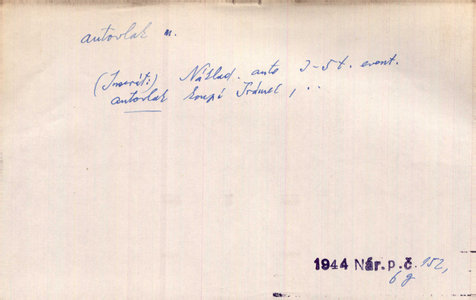 autovlak m.
(Inserát:) Náklad. auto 3-5 t. event.
autovlak koupí
1944 Nár. p. č. 152,
6 g